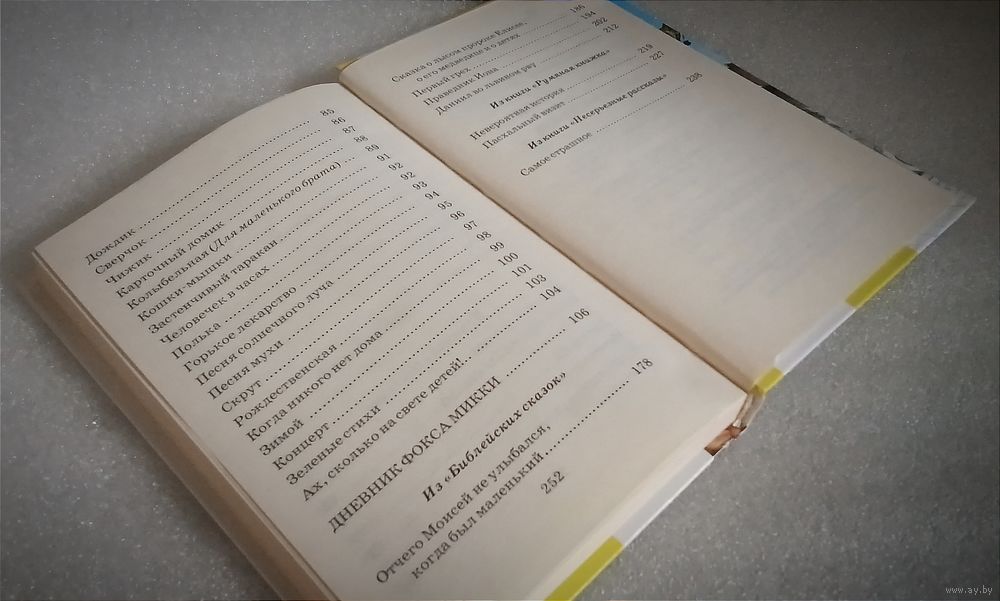 Дождик 85
Сверчок 86
Чижик 87
Карточный домик 88
Колыбельная (Для маленького брата) 89
Кошки-мышки 91
Застенчивый таракан 92
Человечек в часах 92
Полька 93
Горькое лекарство 94
Песня солнечного луча 95
Песня мухи 96
Скрут 97
Рождественская 98
Когда никого нет дома 99
Зимой 100
Концерт 101
Зеленые стихи 103
Ах, сколько на свете детей!.. 104
ДНЕВНИК ФОКСА МИККИ 106
Из «Библейских сказок»
Отчего Моисей не улыбался,
когда был маленький 178
252
Сказка о лысом пророке Елисее,
о его медведице и о детях 186
Первый грех 194
Праведник Иона 202
Даниил во львином рву 212
Из книги «Румяная книжка»
Невероятная история 219
Пасхальный визит 227
Из книги «Несерьезные рассказы»
Самое страшное 238
www.ay.by